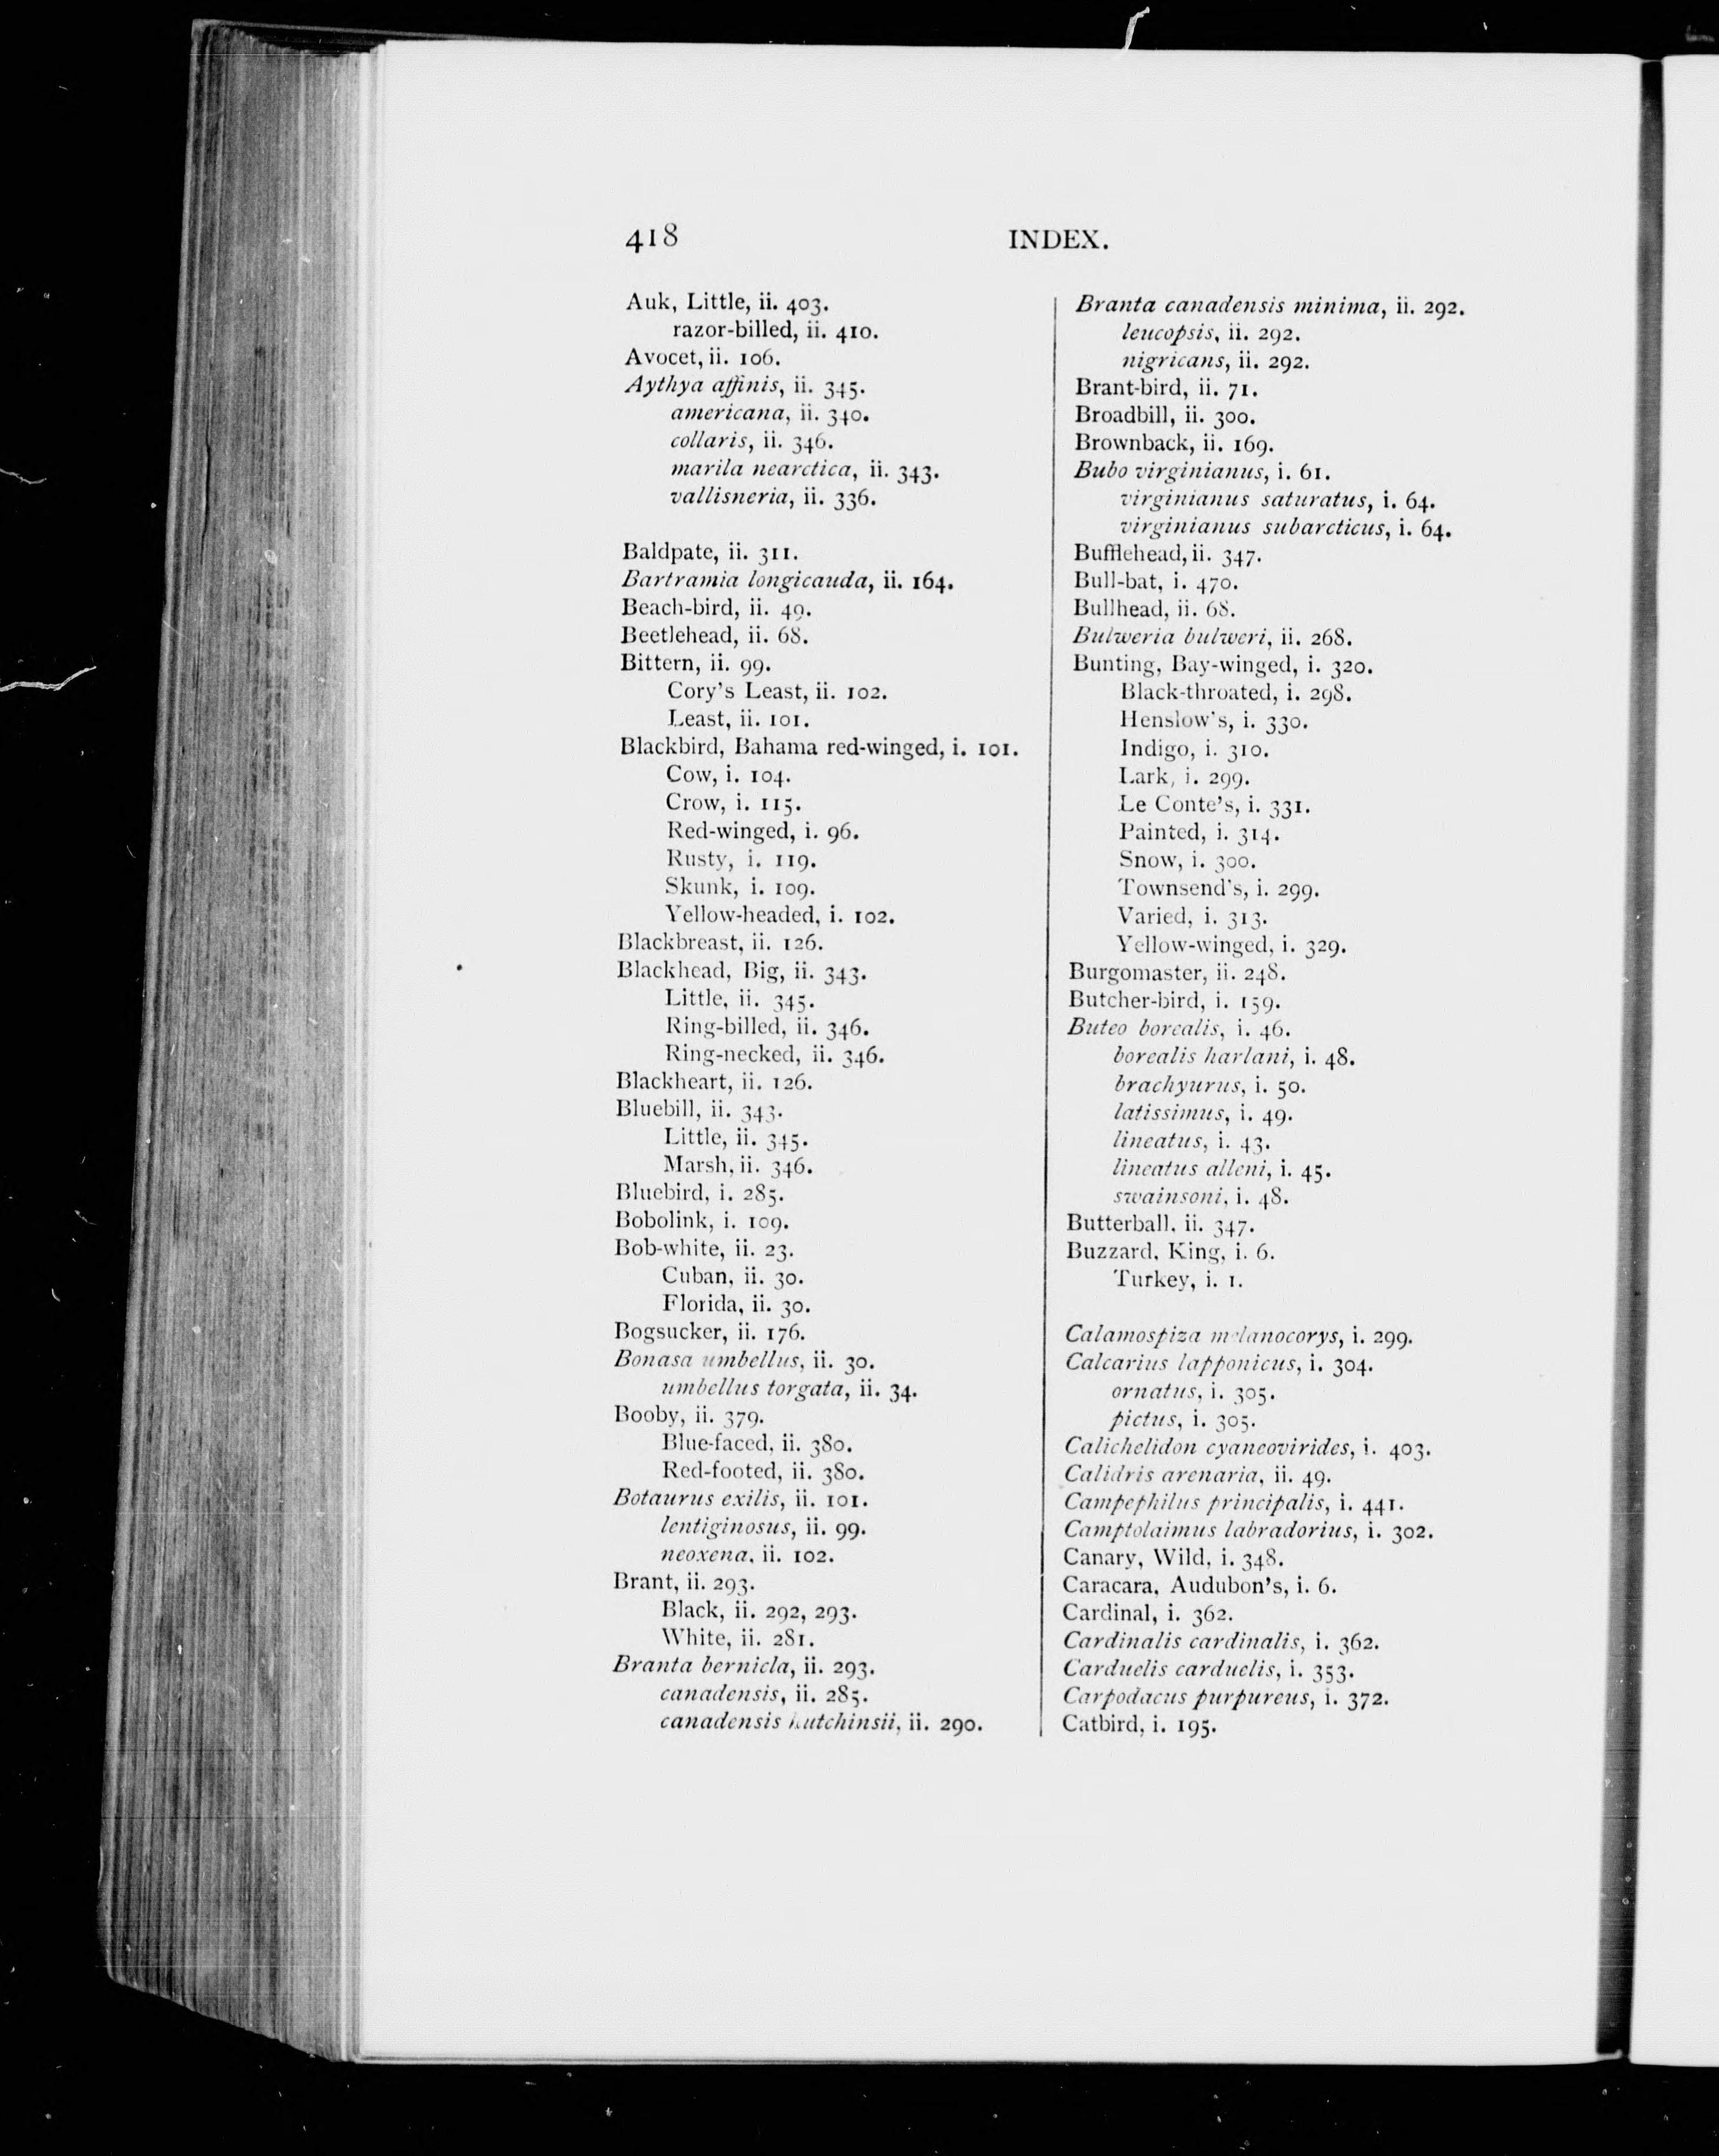 418
INDEX.
Auk, Little, ii. 403.
razor-billed, ii. 410.
Avocet, ii. 106.
Aythya affinis, ii. 345.
americana, ii. 340.
collaris, ii. 346.
marila nearctica, ii. 343.
vallisneria, ii. 336.
Baldpate, ii. 311.
Bartramia longicauda, ii. 164.
Beach-bird, ii. 49.
Beetlehead, ii. 68.
Bittern, ii. 99.
Cory's Least, ii. 102.
Least, ii. 101.
Blackbird, Bahama red-winged, i. 101.
Cow, i. 104.
Crow, i. 115.
Red-winged, i. 96.
Rusty, i. 119.
Skunk, i. 109.
Yellow-headed, i. 102.
Blackbreast, ii. 126.
Blackhead, Big, ii. 343.
Little, ii. 345.
Ring-billed, ii. 346.
Ring-necked, ii. 346.
Blackheart, ii. 126.
Bluebill, ii. 343.
Little, ii. 345.
Marsh, ii. 346.
Bluebird, i. 285.
Bobolink, i. 109.
Bob-white, ii. 23.
Cuban, ii. 30.
Florida, ii. 30.
Bogsucker, ii. 176.
Bonasa umbellus, ii. 30.
umbellus torgata, ii. 34.
Booby, ii. 379.
Blue-faced, ii. 380.
Red-footed, ii. 380.
Botaurus exilis, ii. 101.
lentiginosus, ii. 99.
neoxena, ii. 102.
Brant, ii. 293.
Black, ii. 292, 293.
White, ii. 281.
Branta bernicla, ii. 293.
canadensis, ii. 285.
canadensis hutchinsii, ii. 290.
Branta canadensis minima, ii. 292.
leucopsis, ii. 292.
nigricans, ii. 292.
Brant-bird, ii. 71.
Broadbill, ii. 300.
Brownback, ii. 169.
Bubo virginianus, i. 61.
virginianus saturatus, i. 64.
virginianus subarcticus, i. 64.
Bufflehead, ii. 347.
Bull-bat, i. 470.
Bullhead, ii. 68.
Bulweria bulweri, ii. 268.
Bunting, Bay-winged, i. 320.
Black-throated, i. 298.
Henslow's, i. 330.
Indigo, i. 310.
Lark, i. 299.
Le Conte's, i. 331.
Painted, i. 314.
Snow, i. 300.
Townsend's, i. 299.
Varied, i. 313.
Yellow-winged, i. 329.
Burgomaster, ii. 248.
Butcher-bird, i. 159.
Buteo borealis, i. 46.
borealis harlani, i. 48.
brachyurus, i. 50.
latissimus, i. 49.
lineatus, i. 43.
lineatus alleni, i. 45.
swainsoni, i. 48.
Butterball, ii. 347.
Buzzard, King, i. 6.
Turkey, i. 1.
Calamospiza melanocorys, i. 299.
Calcarius lapponicus, i. 304.
ornatus, i. 305.
pictus, i. 305.
Calichelidon cyaneovirides, i. 403.
Calidris arenaria, ii. 49.
Campephilus principalis, i. 441.
Camptolaimus labradorius, i. 302.
Canary, Wild, i. 348.
Caracara, Audubon's, i. 6.
Cardinal, i. 362.
Cardinalis cardinalis, i. 362.
Carduelis carduelis, i. 353.
Carpodacus purpureus, i. 372.
Catbird, i. 195.